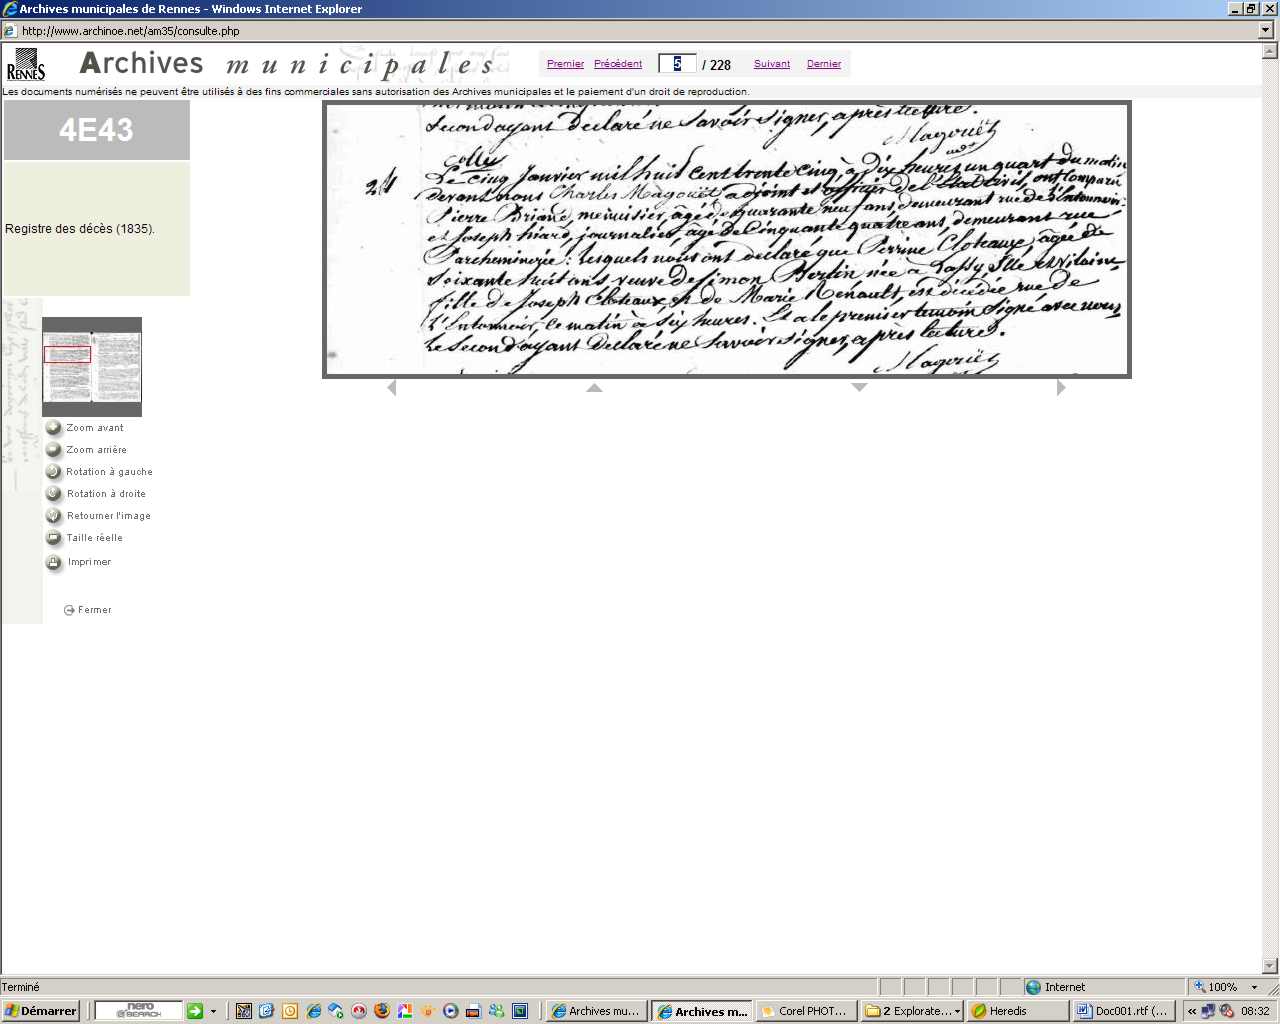 Archives municipales de Rennes - Windows Internet Explorer
http://www.archinoe.net/am35/consulte.php
RENNES
Archives municipales
Premier Précédent 5 / 228 Suivant Dernier
Les documents numérisés ne peuvent être utilisés à des fins commerciales sans autorisation des Archives municipales et le paiement d'un droit de reproduction.
4E43
Registre des décès (1835).
Second ayant déclaré ne Savoir Signer, après lecture.
Magouët
Colleu
24
Le cinq Janvier mil huit cent trente cinq, à dix heures un quart du matin
devant nous Charles Magouët adjoint et officier de l'Etat civil, ont comparu
Pierre Briand, menuisier, âgé de quarante neuf ans, demeurant rue de l'Entonnoir
et Joseph hiard, journalier, âgé de Cinquante quatre ans, demeurant rue
Parcheminerie : lesquels nous ont declaré que Perrine Cloteaux, âgée de
Soixante huit ans veuve de Simon Bertin née à Passy, Ille et Vilaine
fille de Joseph Cloteaux et de Marie Renault, est décédée rue de
l'Entonnoir, ce matin à Six heures. Et a le premier temoin Signé avec nous
le Second ayant Déclaré ne Savoir Signer, après lecture.
Magouët
Zoom avant
Zoom arrière
Rotation à gauche
Rotation à droite
Retourner l'image
Taille réelle
Imprimer
Fermer
Terminé
Internet
100%
Démarrer
nero SEARCH
Archives mu...
Archives m...
Corel PHOT...
2 Explorate...
Heredis
Doc001.rtf (...
08:32